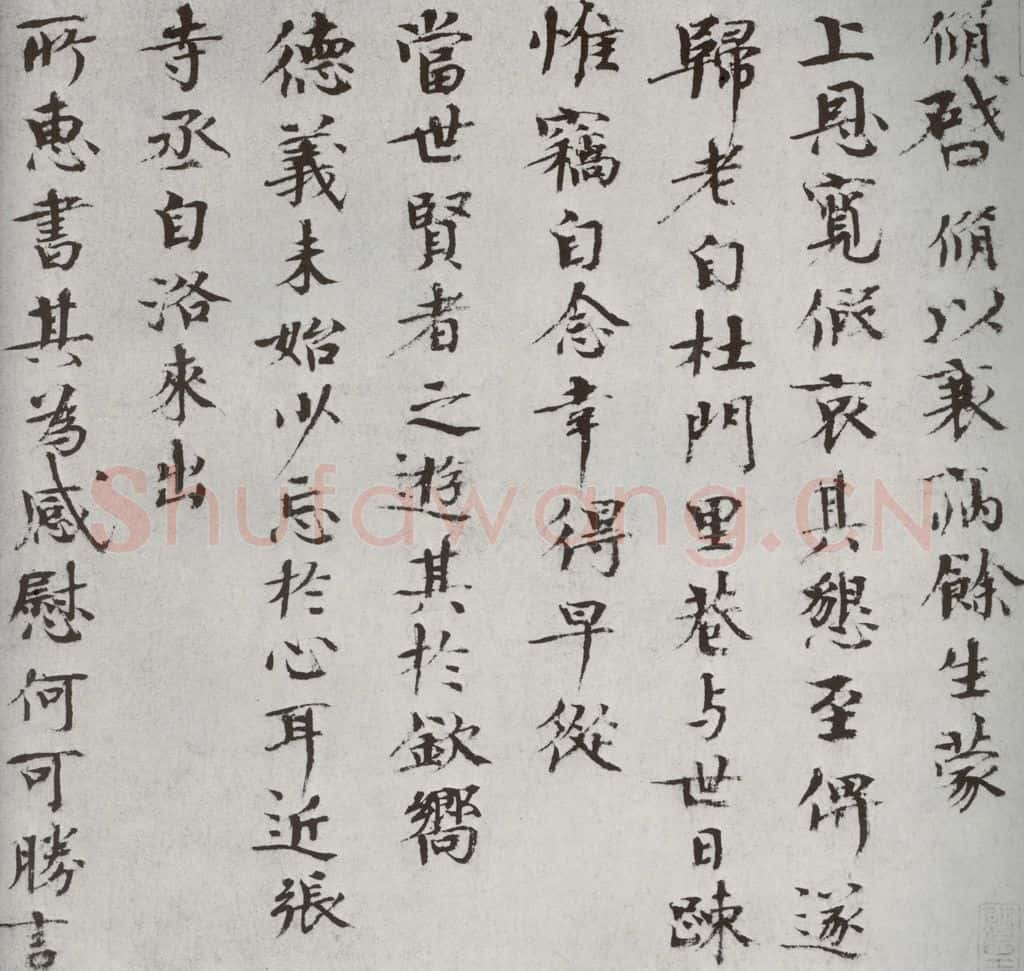 脩啓脩以衰病餘生蒙
上恩寬假哀其懇至俾遂
歸老自杜門里巷与世日踈
惟竊自念幸得早從
當世賢者之遊其於欽嚮
德義未始少忘於心耳近張
寺丞自洛來出
所惠書其為感慰何可勝言
Shufawang.CN